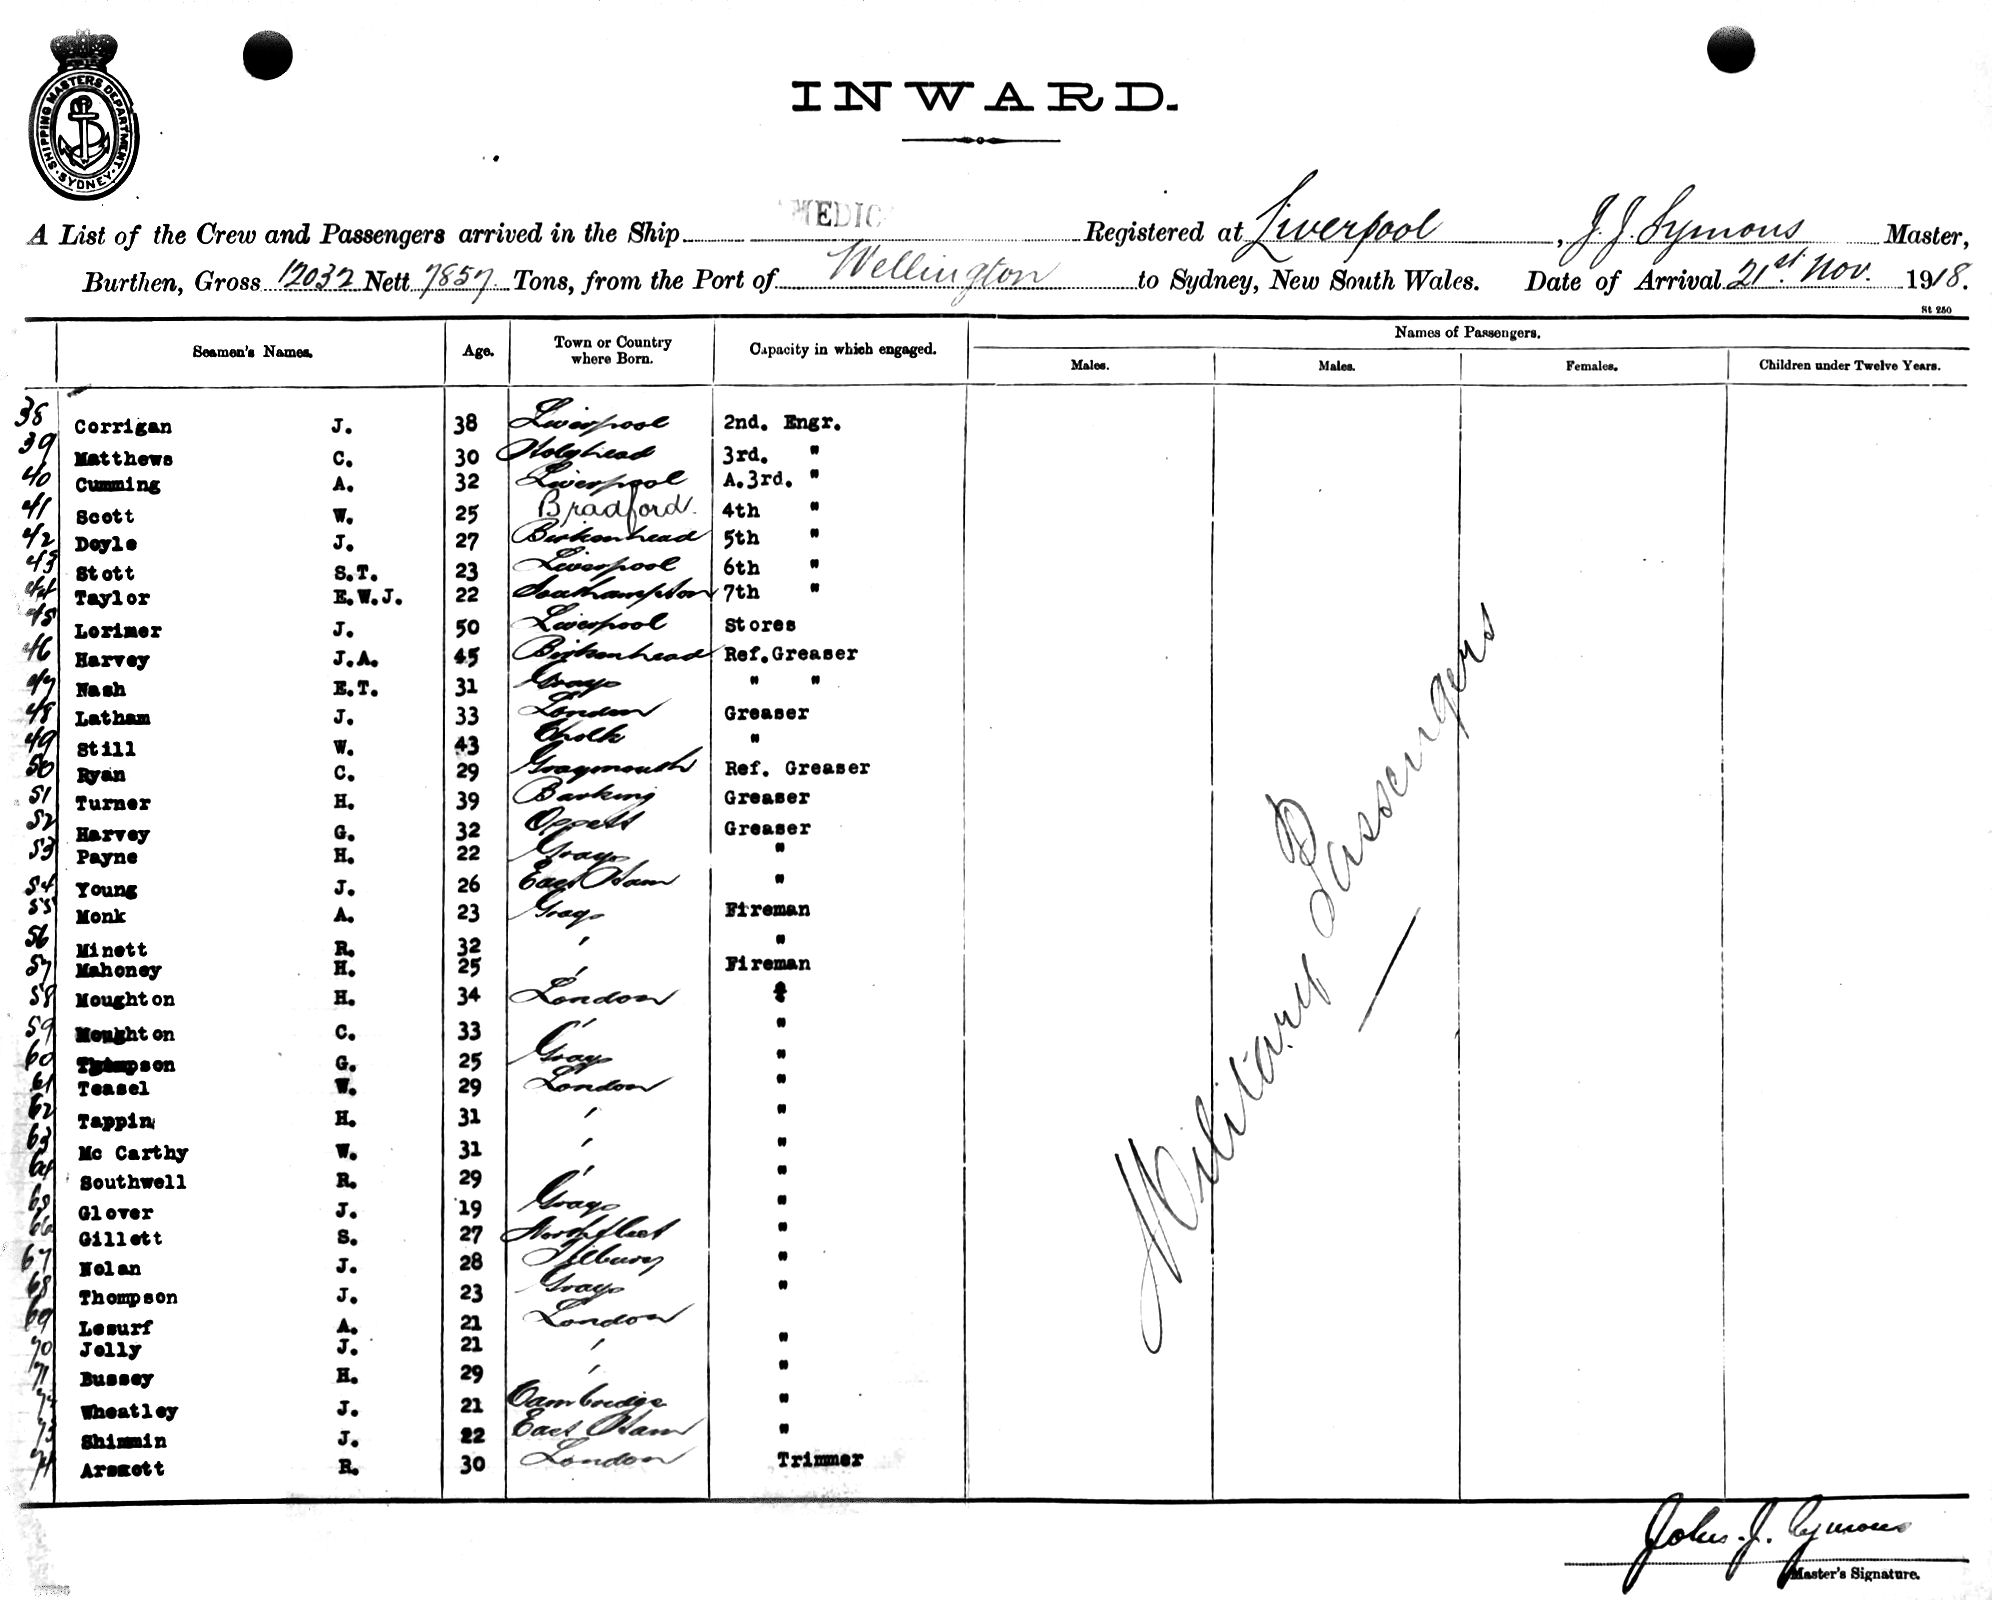 SHIPPING MASTERS DEPARTMENT. SYDNEY.
INWARD.
A List of the Crew and Passengers arrived in the Ship MEDIC Registered at Liverpool, J. J. Symons Master,
Burthen, Gross 12032 Nett 7857 Tons, from the Port of Wellington to Sydney, New South Wales. Date of Arrival 21st Nov. 1918.
St 250
Seamen's Names. Age. Town or Country where Born. Capacity in which engaged. Names of Passengers.
Males. Males. Females. Children under Twelve Years.
38 Corrigan J. 38 Liverpool 2nd. Engr.
39 Matthews C. 30 Holyhead 3rd. "
40 Cumming A. 32 Liverpool A.3rd. "
41 Scott W. 25 Bradford. 4th "
42 Doyle J. 27 Birkenhead 5th "
43 Stott S.T. 23 Liverpool 6th "
44 Taylor E.W.J. 22 Southampton 7th "
45 Lorimer J. 50 Liverpool Stores
46 Harvey J.A. 45 Birkenhead Ref.Greaser
47 Nash E.T. 31 Grays " "
48 Latham J. 33 London Greaser
49 Still W. 43 "
50 Ryan C. 29 Graymouth Ref. Greaser
51 Turner H. 39 Barking Greaser
52 Harvey G. 32 Greaser
53 Payne H. 22 Grays "
54 Young J. 26 East Ham "
55 Monk A. 23 Grays Fireman
56 Minett R. 32 ' "
57 Mahoney H. 25 ' Fireman
58 Moughton H. 34 London "
59 Moughton C. 33 ' "
60 Thompson G. 25 Grays "
61 Teasel W. 29 London "
62 Tappin H. 31 ' "
63 Mc Carthy W. 31 ' "
64 Southwell R. 29 ' "
65 Glover J. 19 Grays "
66 Gillett S. 27 Northfleet "
67 Nolan J. 28 Tilbury "
68 Thompson J. 23 Grays "
69 Lesurf A. 21 London
70 Jolly J. 21 ' "
71 Bussey H. 29 ' "
72 Wheatley J. 21 Cambridge "
73 Shimmin J. 22 East Ham "
74 R. 30 London Trimmer
Military Passengers
John. J. Symons
Master's Signature.